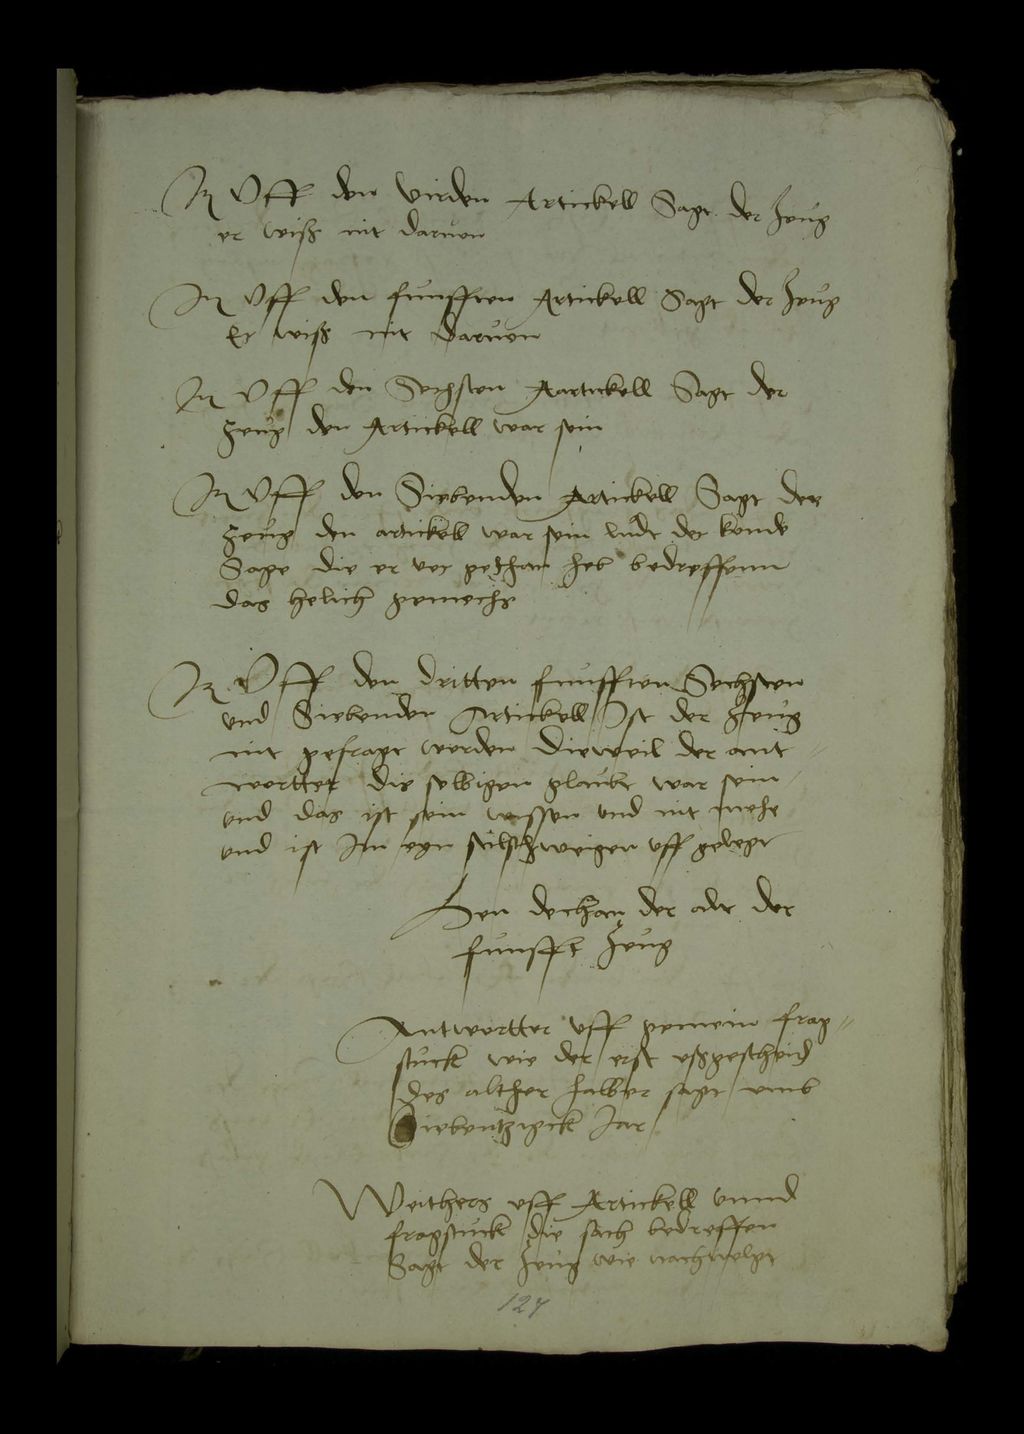 Jt Vff den virden Artickell Sagt der Zeug
er wiß nit daruon
Jt Vff den funfften Artickell Sagt der Zeug
Er wiß nit daruon
Jt Vff den Sechsten Aartickell Sagt der
Zeug den Artickell war sein
Jt Vff den Siebenden Artickell Sagt der
Zeug den artickell war sein ludt der konde
Sage die er vor gethan heb bedreffenn
das helich gemechs
Jt Vff den dritten funfften Sechsten
vnd Siebenden Artickell Ist der Zeug
nit gefragt worden dieweil der ant
wortter die selbigen glaubt war sein
vnd das ist sein wissen vnd nit mehe
vnd ist Jm eyn stilschweigen vff gelegt
Hen dechan der alt der
funfft Zeug
Antwortter vff gemein frag
stuck wie der erst vßgescheid
des alther halber sagt vmb
Siebentzigck Jar
Weithers vff Artickell vnnd
fragstuck die sach bedreffen
Sagt der Zeug wie nachuolgt
127